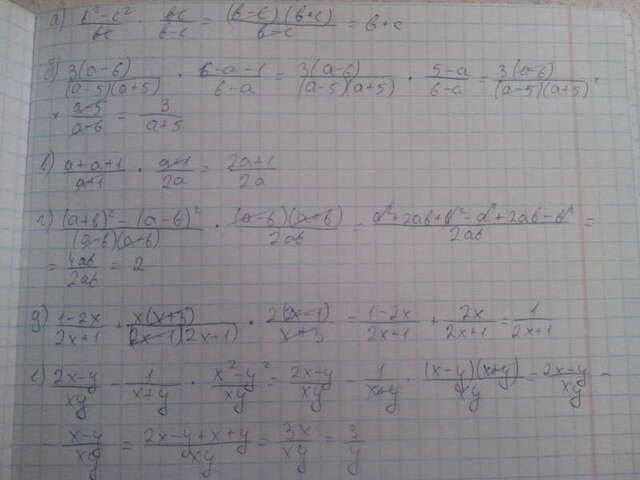 а) (b²-c²)/bc · bc/(b-c) = ((b-c)(b+c))/(b-c) = b+c
б) 3(a-6)/((a-5)(a+5)) · (6-a-1)/(6-a) = 3(a-6)/((a-5)(a+5)) · (5-a)/(6-a) = 3(a-6)/((a-5)(a+5)) ·
× (a-5)/(a-6) = 3/(a+5)
в) (a+a+1)/(a+1) · (a+1)/2a = (2a+1)/2a
г) ((a+b)²-(a-b)²)/((a-b)(a+b)) · ((a-b)(a+b))/2ab = (a²+2ab+b²-a²+2ab-b²)/2ab =
= 4ab/2ab = 2
д) (1-2x)/(2x+1) + x(x+3)/((2x-1)(2x+1)) · 2(x-1)/(x+3) = (1-2x)/(2x+1) + 2x/(2x+1) = 1/(2x+1)
е) (2x-y)/xy - 1/(x+y) · (x²-y²)/xy = (2x-y)/xy - 1/(x+y) · ((x-y)(x+y))/xy = (2x-y)/xy -
- (x-y)/xy = (2x-y+x+y)/xy = 3x/xy = 3/y